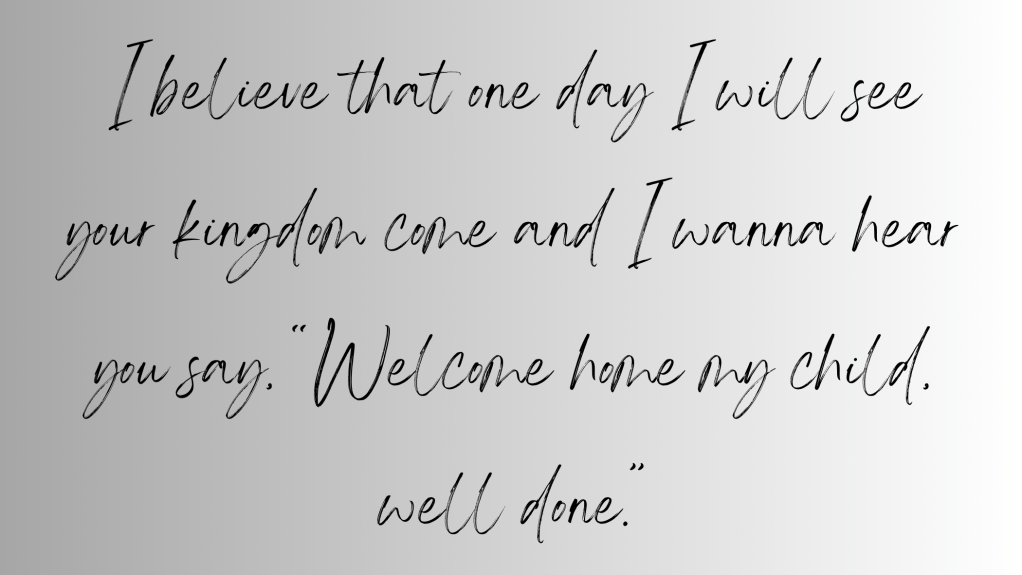 I believe that one day I will see
your kingdom come and I wanna hear
you say, “Welcome home my child,
well done.”